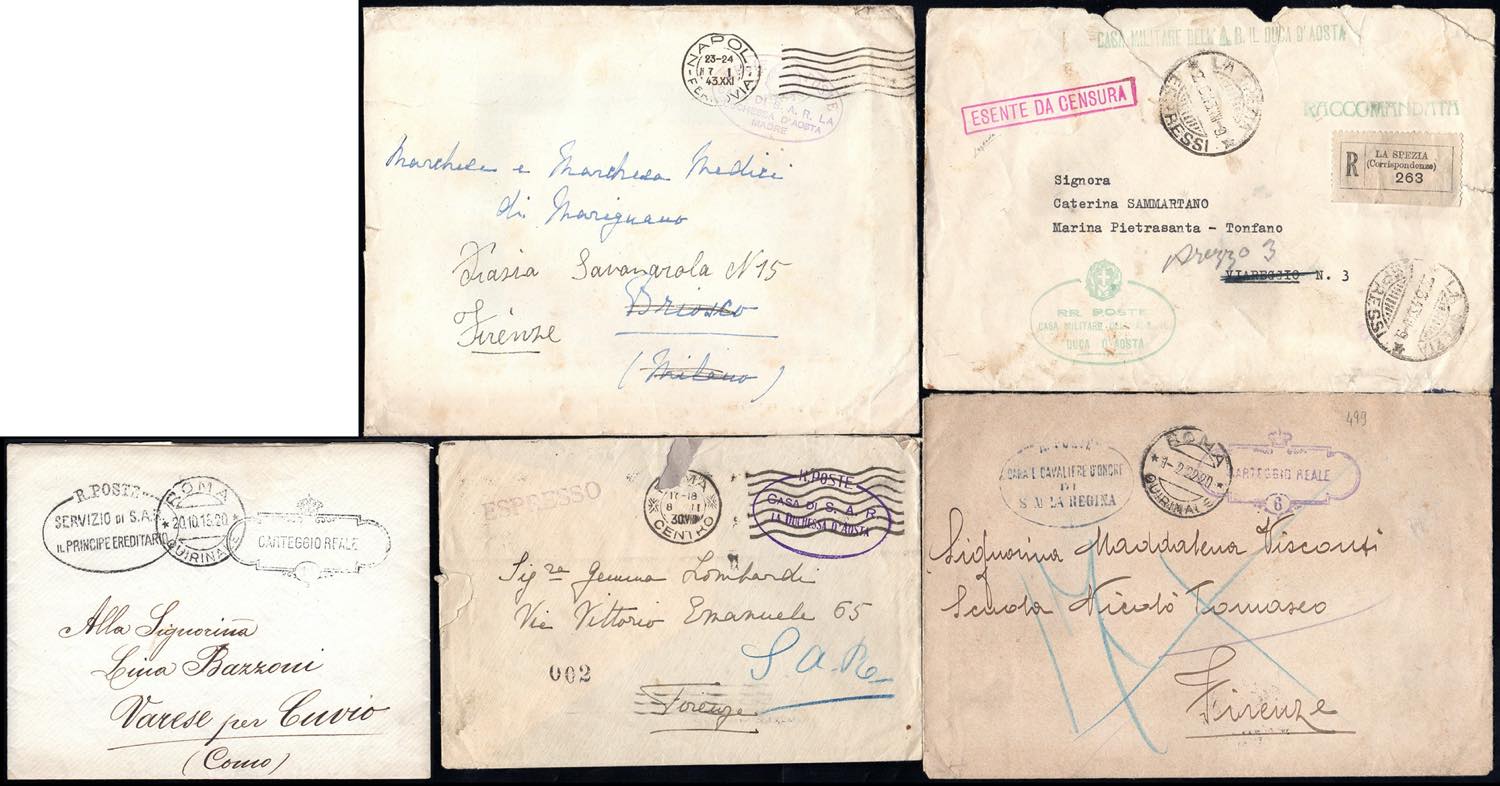 NAPOLI
23-24
7 I
43.XXI
FERROVIA
DI S. A. R. LA
DUCHESSA D'AOSTA
MADRE
Marchese e Marchesa Medici
di Marignano
Savanarola N 15
Briosco
Firenze
(Milano)
CASA MILITARE DELL'A. R. IL DUCA D'AOSTA
ESENTE DA CENSURA
LA SPEZIA
RACCOMANDATA
R
LA SPEZIA
(Corrispondenze)
263
Signora
Caterina SAMMARTANO
Marina Pietrasanta - Tonfano
Arezzo 3
VIAREGGIO N. 3
RR. POSTE
CASA MILITARE DELL'A. R. IL
DUCA D'AOSTA
LA SPEZIA
R. POSTE
SERVIZIO DI S.A.R.
IL PRINCIPE EREDITARIO
ROMA
20.10.16.20
QUIRINALE
CARTEGGIO REALE
Alla Signorina
Lina Bazzoni
Varese per Cuvio
(Como)
ESPRESSO
ROMA
17-18
8 II
30.VIII
CENTRO
R. POSTE
CASA DI S. A. R.
LA DUCHESSA D'AOSTA
Sig.ra Gemma Lombardi
Via Vittorio Emanuele 65
S. A. R.
002
Firenze
499
R. POSTE
DAMA E CAVALIERE D'ONORE
DI
S. M. LA REGINA
ROMA
QUIRINALE
CARTEGGIO REALE
6
Signorina Maddalena Visconti
Scuola Nicolò Tomaseo
Firenze